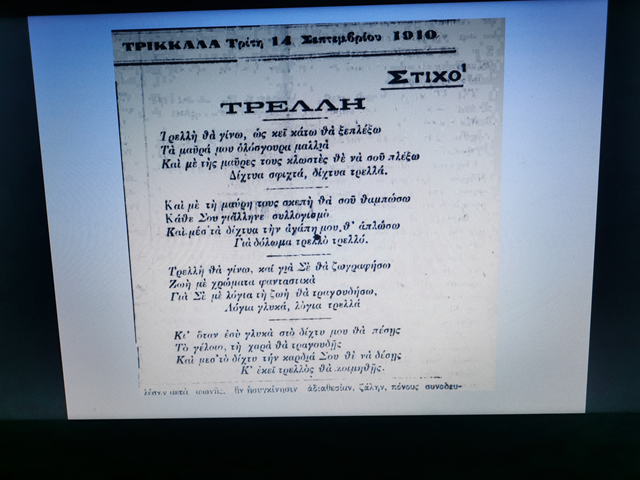 ΤΡΙΚΚΑΛΑ Τρίτη 14 Σεπτεμβρίου 1910
ΣΤΙΧΟΙ
ΤΡΕΛΛΗ
Τρελλὴ θὰ γίνω, ὡς κεῖ κάτω θὰ ξεπλέξω
Τὰ μαῦρά μου ὁλόσγουρα μαλλιὰ
Καὶ μὲ τῆς μαῦρες τους κλωστὲς θὲ νὰ σοῦ πλέξω
Δίχτυα σφιχτά, δίχτυα τρελλά.
Καὶ μὲ τὴ μαύρη τους σκεπὴ θὰ σοῦ θαμπώσω
Κάθε Σου γιάλληνε συλλογισμὸ
Καὶ μέσ' τὰ δίχτυα τὴν ἀγάπη μου θ' ἁπλώσω
Γιὰ δόλωμα τρελλὸ τρελλό.
Τρελλὴ θὰ γίνω, καὶ γιὰ Σὲ θὰ ζωγραφήσω
Ζωὴ μὲ χρώματα φανταστικὰ
Γιὰ Σὲ μὲ λόγια τὴ ζωὴ θὰ τραγουδήσω,
Λόγια γλυκά, λόγια τρελλὰ
Κι' ὅταν ἐσὺ γλυκὰ στὸ δίχτυ μου θὰ πέσῃς
Τὸ γέλοιο, τὴ χαρὰ θὰ τραγουδῇς
Καὶ μεσ' τὸ δίχτυ τὴν καρδιά Σου θὲ νὰ δέσῃς
Κ' ἐκεῖ τρελλὸς θὰ κοιμηθῇς.
μετὰ ἀδιαθεσίαν, ζάλην, πόνους συνοδευ-